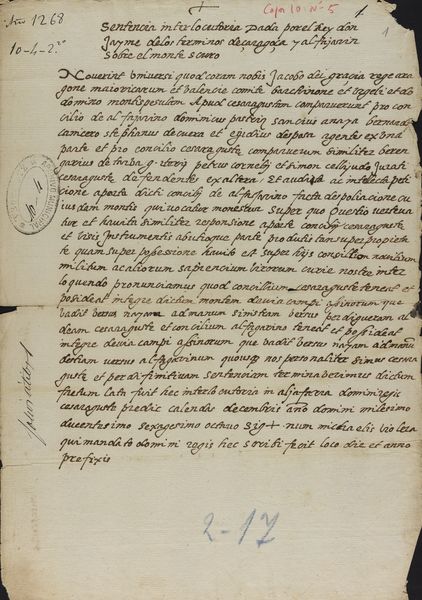 Año 1268
Caja 10. Nº 5
1
10-4-2º
Sentencia interlocutoria Dada por el Rey don
Jayme de los terminos de çaragoça y alfajarin
sobre el monte scuro
Noverint universi quod coram nobis Jacobo dei gracia rege ara
gone maioricarum et valencie comite barchinone et urgeli et do
domino montispesulani Apud cesaraugustam comparuerunt pro con
cilio de alfajarino dominicus sancius anaya bernard
carnicero stephanus de cuera et egidius despota agentes ex una
parte et pro concilio cesarauguste comparuerunt similiter beren
garius de petrus cornelii et simon Jurati
cesarauguste defendentes ex altera Et audita ac intelecta peti
cione a parte dicti concilii de alfajarino facta de spoliacione cu
iusdam montis qui vocatur super quo questio verteba
tur et havita similiter responsione a parte concilii cesarauguste
et visis Instrumentis ab utroque parte produtis tan super propieta
te quam super possesione havito et super hiis consillio
militum ac aliorum sapiencium virorum curie nostre inter
loquendo pronunciamus quod concilium cesarauguste teneat et
posideat integre dictum montem de via campi asinorum que
vadit versus nayam ad manum sinistram versus perdigueram
deam cesarauguste et concilium alfajarino teneat et posideat
integre de via campi asinorum que vadit versus nayam ad manum
dextram versus alfajarinum quousque nos personaliter simus cesara
guste et per difinitivam sentenciam terminaverimus dictum
factum lata fuit hec interlocutoria in aljaferia domini regis
cesarauguste predic calendas decembris año domini milesimo
ducentesimo sexagesimo octavo sig+num michaelis violeta
qui mandato domini regis hec scribi fecit loco die et anno
prefixis
2-17